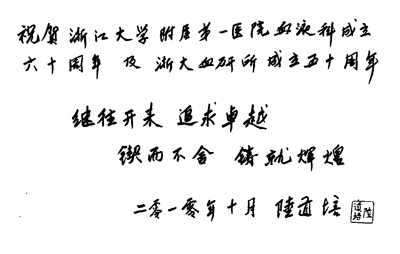 祝贺浙江大学附属第一医院血液科成立
六十周年 及 浙大血研所成立五十周年
继往开来 追求卓越
锲而不舍 铸就辉煌
二零一零年十月 陸道培
陸道培